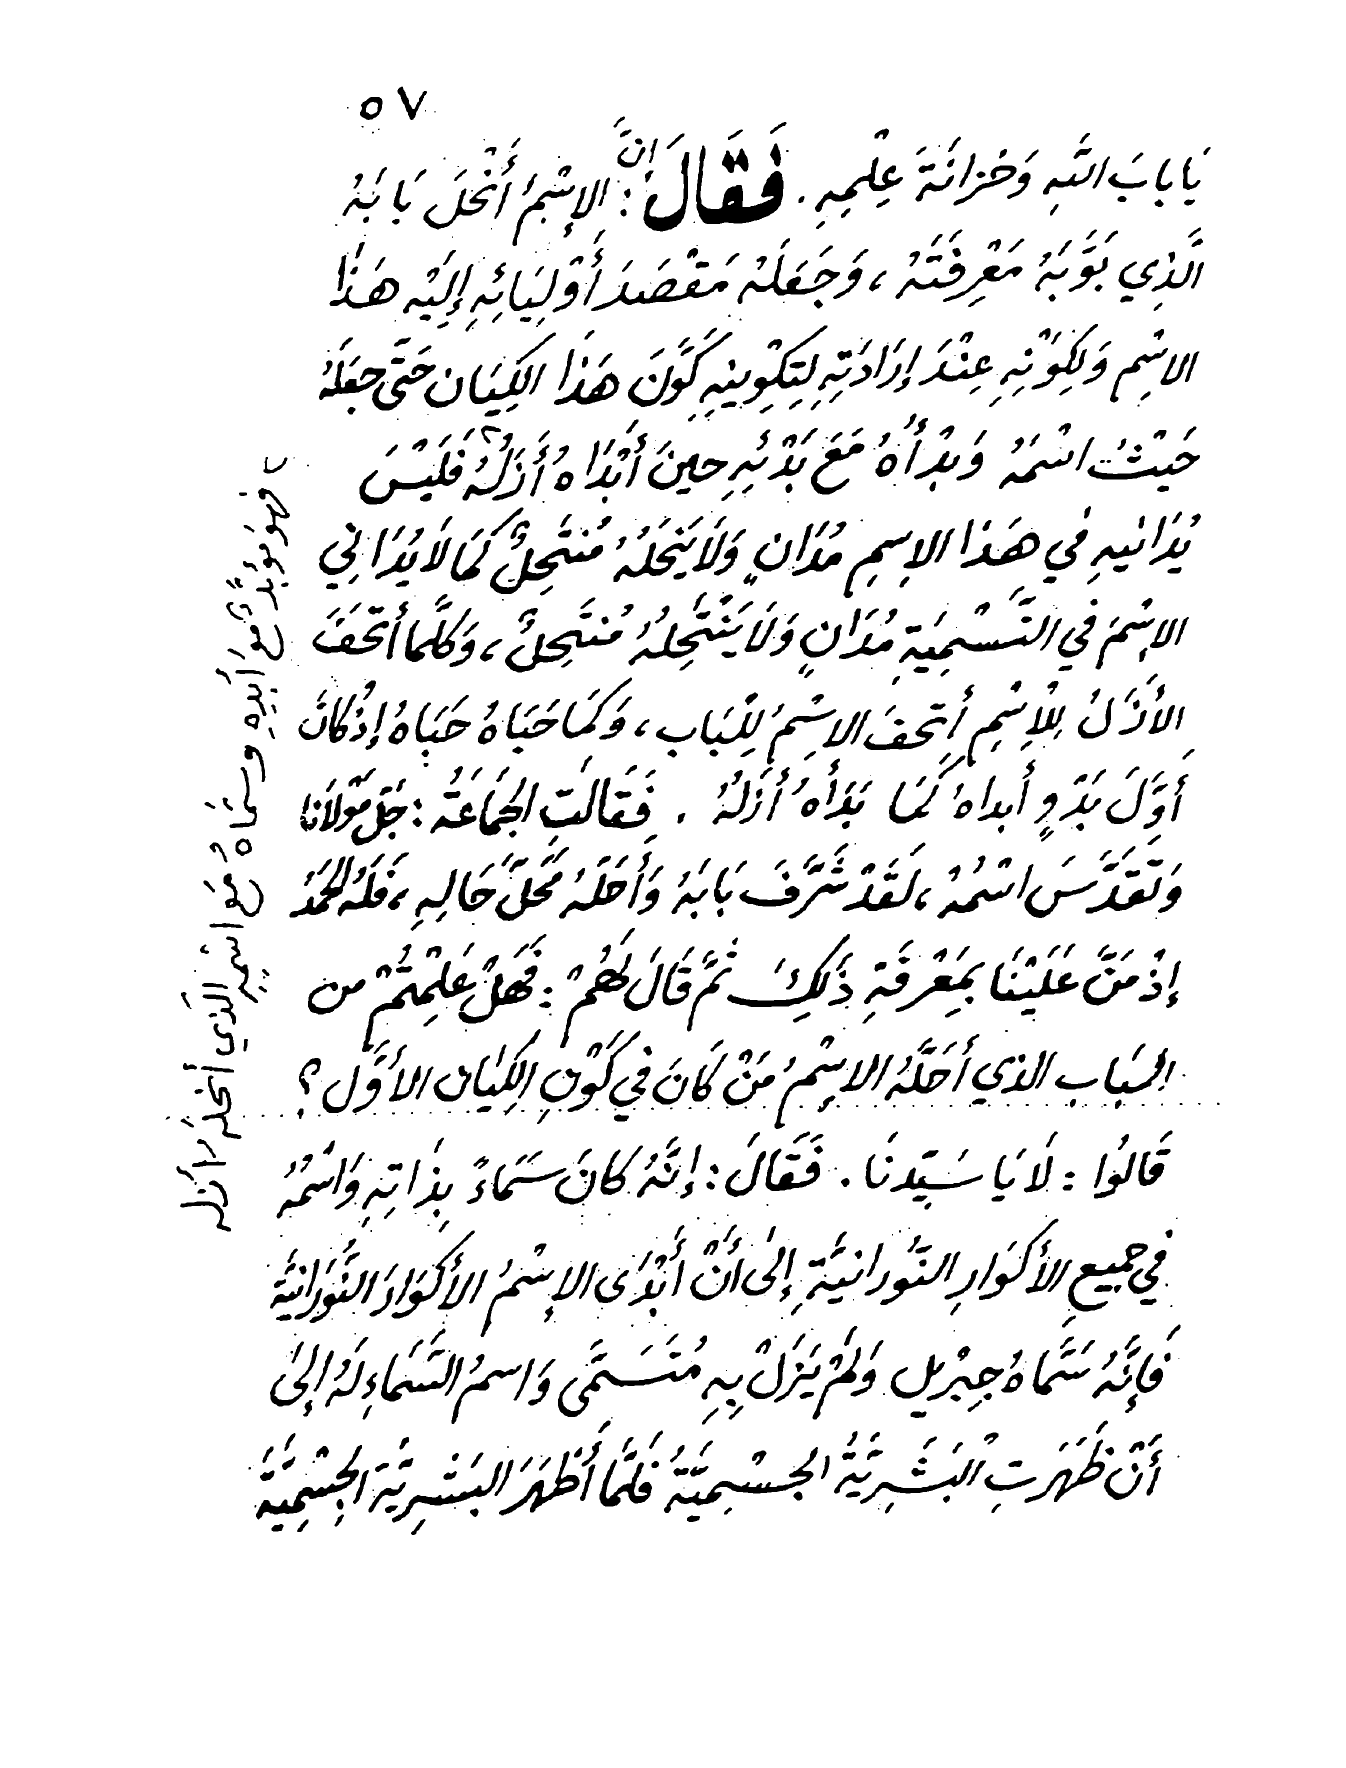 ٥٧
يَا بَابَ اللَّهِ وَخَزَانَةَ عِلْمِهِ . فَقَالَ : إنَّ الإِسْمُ أَنْحَلَ بَابَهُ
الَّذِي بَوَّبَهُ مَعْرِفَتَهُ ، وَجَعَلَهُ مَقْصَدَ أَوْلِيَائِهِ إِلَيْهِ هَذَا
الاسْمِ وَلِكَوْنِهِ عِنْدَ إِرَادَتِهِ لِتِكْوِينِهِ كَوَّنَ هَذَا الكِيَان حَتَّى جَعَلَهُ
حَيْثُ اسْمَهُ وَبَدْأُهُ مَعَ بَدْئِهِ حِينَ أَبْدَاهُ أَزَلُهُ ؟ فَلَيْسَ
يُدَانِيهِ فِي هَذَا الاِسِمِ مُدَانٍ وَلَا يَنْحَلُهُ مُنتَحِلٌ كَمَا لَا يُدَانِي
الاِسْمَ فِي التَّسْمِيَةِ مُدَانٍ وَلَا يَنْتَحِلهُ مُنتَحِلٌ ، وَكُلَّمَا أَتْحَفَ
الأَزَلُ لِلْاِسْمِ أَتحَفَ الاسْمُ لِلْبَابِ ، وَكَمَا حَبَاهُ حَبَاهُ إِذْ كَانَ
أَوَّلَ بَدْوٍ أَبداهُ كَمَا بَدَأَهُ أَزَلُهُ . فَقَالَتِ الجَمَاعَةُ : جَلَّ مَوْلَانَا
وَتَقَدَّسَ اسْمُهُ ، لَقَدْ شَرَّفَ بَابَهُ وَأَحَلَهُ مَحَلَّ حَالِهِ ، فَلَهُ الحَمْدُ
إِذْ مَنَّ عَلَيْنَا بِمَعْرِفَةِ ذَلِكَ ثُمَّ قَالَ لَهُمْ : فَهَلْ عَلِمْتُمْ من
البَابِ الذي أَحَلَّهُ الاِسْمُ مَنْ كَانَ فِي كَوْنِ الكِيَان الأَوَّل ؟
قَالُوا : لَا يَا سَيِّدنَا . فَقَالَ : إِنَّهُ كَانَ سَمَاءً بِذَاتِهِ وَاسْمُهُ
فِي جَمِيعِ الأَكْوَارِ النُّورانيَّةِ إِلَى أَنْ أَبْدَى الاِسْمُ الأَكْوَارَ النُّورَانيَّة
فَإِنَّهُ سَمَّاهُ جِبْرِيل وَلَمْ يَزَلْ بِهِ مُتَسَمَّى وَاسمُ السَّمَاءِ لَهُ إِلَى
أَنْ ظَهَرَتِ الْبَشَرِيَّةُ الجسْمِيَّةُ فَلَمَّا أَظْهَرَ البَشَرِيَّةَ الجِسْمِيَّةَ
فهو مُؤبدٌ مَعَ أَبَدِهِ وسَمَاهُ مَعَ اسْمِهِ الَّذِي أَنْحَلَهُ أَزَلُه